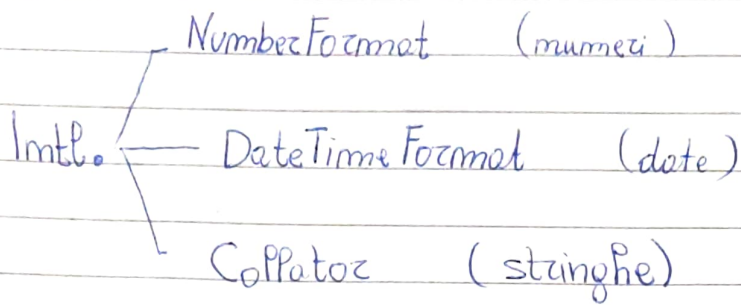 NumberFormat (numeri)
Intl. DateTimeFormat (date)
Collator (stringhe)